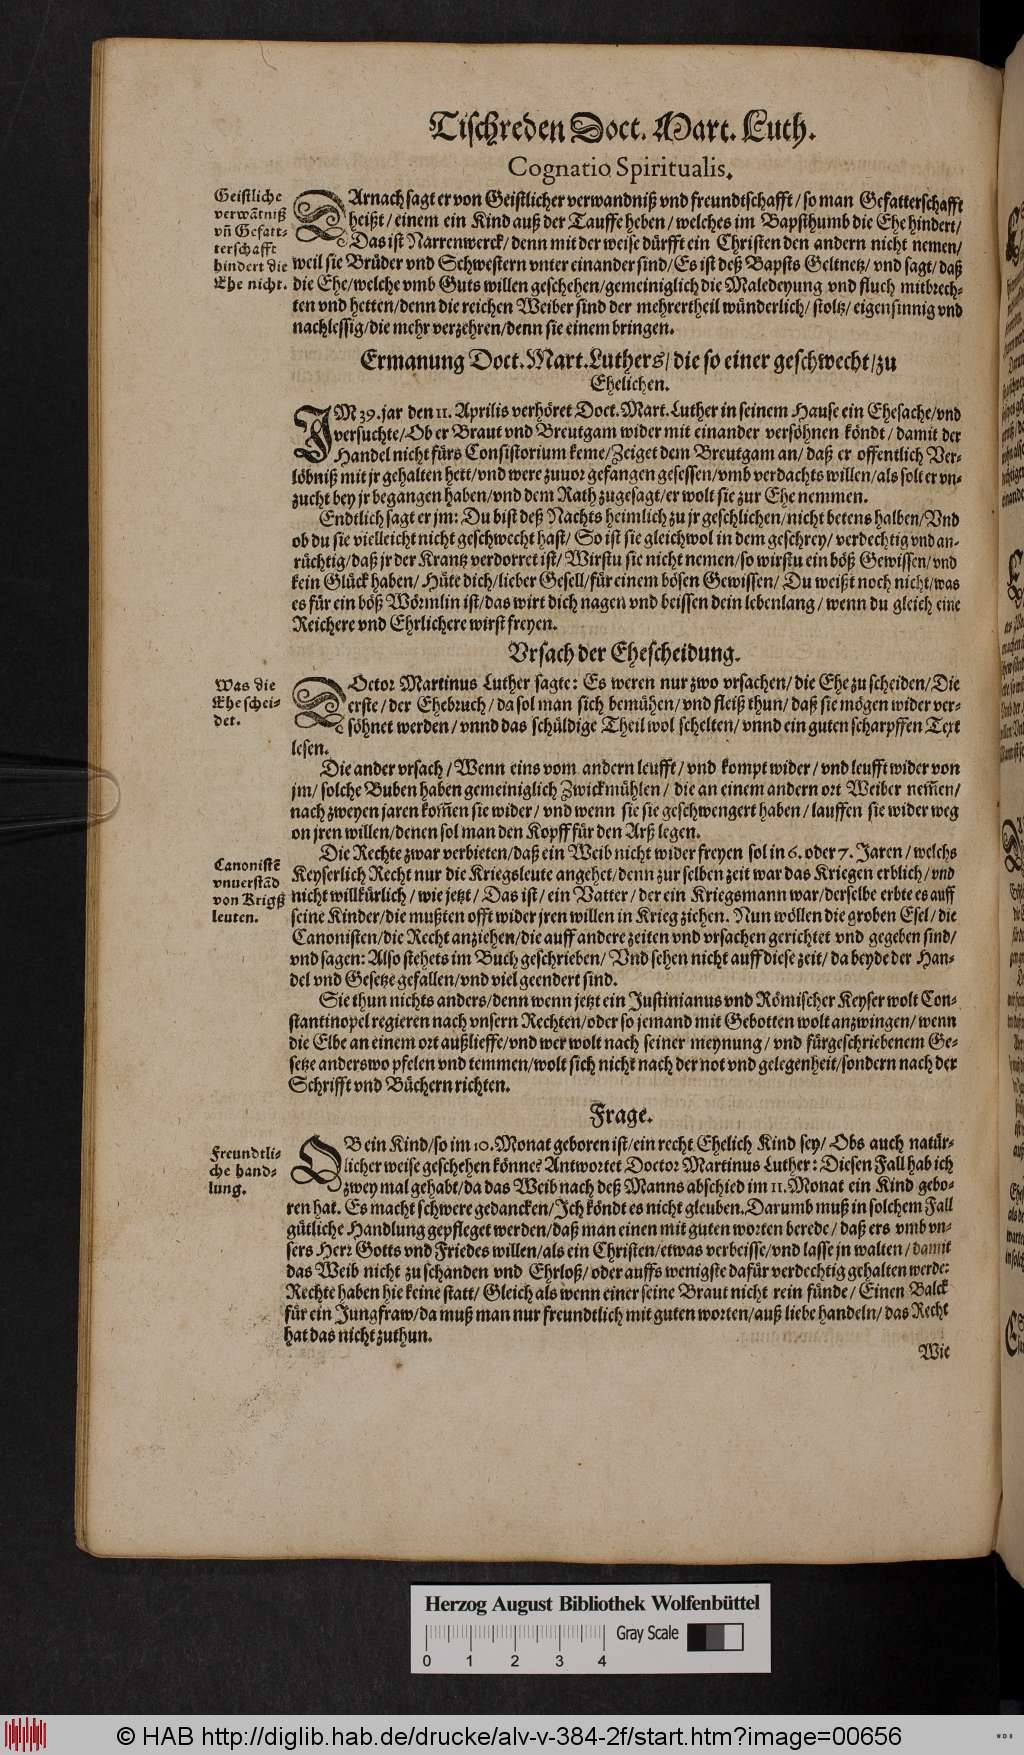 Tischreden Doct. Mart. Luth.
Cognatio Spiritualis.
Geistliche
verwãtniß
vñ Gefatt-
terschafft
hindert die
Ehe nicht.
DArnach sagt er von Geistlicher verwandniß vnd freundtschafft / so man Gefatterschafft
heißt / einem ein Kind auß der Tauffe heben / welches im Bapsthumb die Ehe hindert /
Das ist Narrenwerck / denn mit der weise dürfft ein Christen den andern nicht nemen /
weil sie Brüder vnd Schwestern vnter einander sind / Es ist deß Bapsts Geltnetz / vnd sagt / daß
die Ehe / welche vmb Guts willen geschehen / gemeiniglich die Maledeyung vnd fluch mitbrech-
ten vnd hetten / denn die reichen Weiber sind der mehrertheil wünderlich / stoltz / eigensinnig vnd
nachlessig / die mehr verzehren / denn sie einem bringen.
Ermanung Doct. Mart. Luthers / die so einer geschwecht / zu
Ehelichen.
IM 39. jar den 11. Aprilis verhöret Doct. Mart. Luther in seinem Hause ein Ehesache / vnd
versuchte / Ob er Braut vnd Breutgam wider mit einander versöhnen köndt / damit der
Handel nicht fürs Consistorium keme / Zeiget dem Breutgam an / daß er offentlich Ver-
löbniß mit jr gehalten hett / vnd were zuuor gefangen gesessen / vmb verdachts willen / als solt er vn-
zucht bey jr begangen haben / vnd dem Rath zugesagt / er wolt sie zur Ehe nemmen.
Endtlich sagt er jm: Du bist deß Nachts heimlich zu jr geschlichen / nicht betens halben / Vnd
ob du sie vielleicht nicht geschwecht hast / So ist sie gleichwol in dem geschrey / verdechtig vnd an-
rüchtig / daß jr der Krantz verdorret ist / Wirstu sie nicht nemen / so wirstu ein böß Gewissen / vnd
kein Glück haben / Hüte dich / lieber Gesell / für einem bösen Gewissen / Du weißt noch nicht / was
es für ein böß Wörmlin ist / das wirt dich nagen vnd beissen dein lebenlang / wenn du gleich eine
Reichere vnd Ehrlichere wirst freyen.
Vrsach der Ehescheidung.
Was die
Ehe schei-
det.
DOctor Martinus Luther sagte: Es weren nur zwo vrsachen / die Ehe zu scheiden / Die
erste / der Ehebruch / da sol man sich bemühen / vnd fleiß thun / daß sie mögen wider ver-
söhnet werden / vnnd das schüldige Theil wol schelten / vnnd ein guten scharpffen Text
lesen.
Die ander vrsach / Wenn eins vom andern leufft / vnd kompt wider / vnd leufft wider von
jm / solche Buben haben gemeiniglich Zwickmühlen / die an einem andern ort Weiber nem̃en /
nach zweyen jaren kom̃en sie wider / vnd wenn sie sie geschwengert haben / lauffen sie wider weg
on jren willen / denen sol man den Kopff für den Arß legen.
Canonistẽ
vnuerstãd
von Krigß
leuten.
Die Rechte zwar verbieten / daß ein Weib nicht wider freyen sol in 6. oder 7. Jaren / welchs
Keyserlich Recht nur die Kriegsleute angehet / denn zur selben zeit war das Kriegen erblich / vnd
nicht willkürlich / wie jetzt / Das ist / ein Vatter / der ein Kriegsmann war / derselbe erbte es auff
seine Kinder / die mußten offt wider jren willen in Krieg ziehen. Nun wöllen die groben Esel / die
Canonisten / die Recht anziehen / die auff andere zeiten vnd vrsachen gerichtet vnd gegeben sind /
vnd sagen: Also stehets im Buch geschrieben / Vnd sehen nicht auff diese zeit / da beyde der Han-
del vnd Gesetze gefallen / vnd viel geendert sind.
Sie thun nichts anders / denn wenn jetzt ein Justinianus vnd Römischer Keyser wolt Con-
stantinopel regieren nach vnsern Rechten / oder so jemand mit Gebotten wolt anzwingen / wenn
die Elbe an einem ort außlieffe / vnd wer wolt nach seiner meynung / vnd fürgeschriebenem Ge-
setze anderswo pfelen vnd temmen / wolt sich nicht nach der not vnd gelegenheit / sondern nach der
Schrifft vnd Büchern richten.
Frage.
Freundtli-
che hand-
lung.
OB ein Kind / so im 10. Monat geboren ist / ein recht Ehelich Kind sey / Obs auch natür-
licher weise geschehen könne? Antwortet Doctor Martinus Luther: Diesen Fall hab ich
zwey mal gehabt / da das Weib nach deß Manns abschied im 11. Monat ein Kind gebo-
ren hat. Es macht schwere gedancken / Ich köndt es nicht gleuben. Darumb muß in solchem Fall
gütliche Handlung gepfleget werden / daß man einen mit guten worten berede / daß ers vmb vn-
sers Herr Gotts vnd Friedes willen / als ein Christen / etwas verbeisse / vnd lasse jn walten / damit
das Weib nicht zu schanden vnd Ehrloß / oder auffs wenigste dafür verdechtig gehalten werde:
Rechte haben hie keine statt / Gleich als wenn einer seine Braut nicht rein fünde / Einen Balck
für ein Jungfraw / da muß man nur freundtlich mit guten worten / auß liebe handeln / das Recht
hat das nicht zuthun.
Wie
Herzog August Bibliothek Wolfenbüttel
Gray Scale
0 1 2 3 4
© HAB http://diglib.hab.de/drucke/alv-v-384-2f/start.htm?image=00656